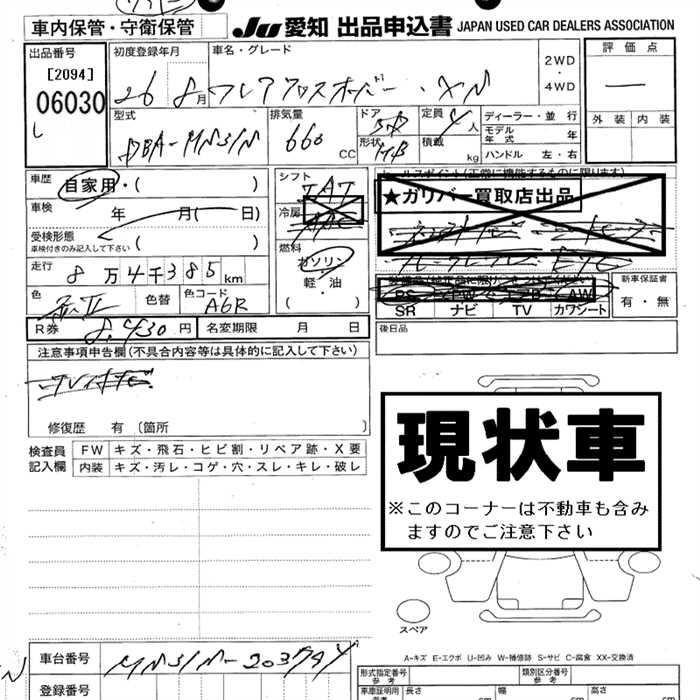 車内保管・守衛保管
JU 愛知 出品申込書 JAPAN USED CAR DEALERS ASSOCIATION
出品番号 初度登録年月 車名・グレード 2WD・4WD 評価点
[2094]
06030
し
26 8月 フレアクロスオーバー・XN
外装 内装
型式 排気量 ドア 定員 ディーラー・並行
DBA-MS31N 660 CC 5D 4人
モデル年式 年
形状 HB 積載 kg ハンドル 左・右
車歴 自家用・( )
シフト AT
セールスポイント(正常に機能するものに限ります)
★ガリバー買取店出品
車検 年 月( 日)
冷房 AAC
受検形態
車検付きのみ記入して下さい ( )
燃料 ガソリン・軽油・( )
走行 8万4千385km
色 色替 色コード A6R
PS PW AB AW
SR ナビ TV カワシート
新車保証書
有・無
R券 8,430円 名変期限 月 日
後日品
注意事項申告欄(不具合内容等は具体的に記入して下さい)
修復歴 有 [箇所 ]
検査員記入欄
FW キズ・飛石・ヒビ割・リペア跡・X要
内装 キズ・汚レ・コゲ・穴・スレ・キレ・破レ
現状車
※このコーナーは不動車も含みますのでご注意下さい
スペア
A-キズ E-エクボ U-凹み W-補修跡 S-サビ C-腐食 XX-交換済
車台番号
登録番号
形式指定番号 参考 類別区分番号 参考
車庫証明用 参考 長さ cm 幅 cm 高さ cm